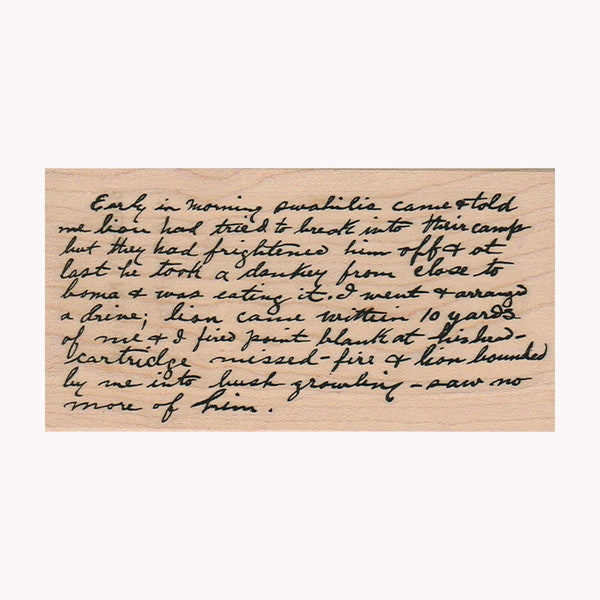 Early in morning swahilis came & told
me lion had tried to break into their camp
but they had frightened him off & at
last he took a donkey from close to
boma & was eating it. I went & arranged
a drive; lion came within 10 yards
of me & I fired point blank at his head-
cartridge missed-fire & lion bounded
by me into bush growling - saw no
more of him.